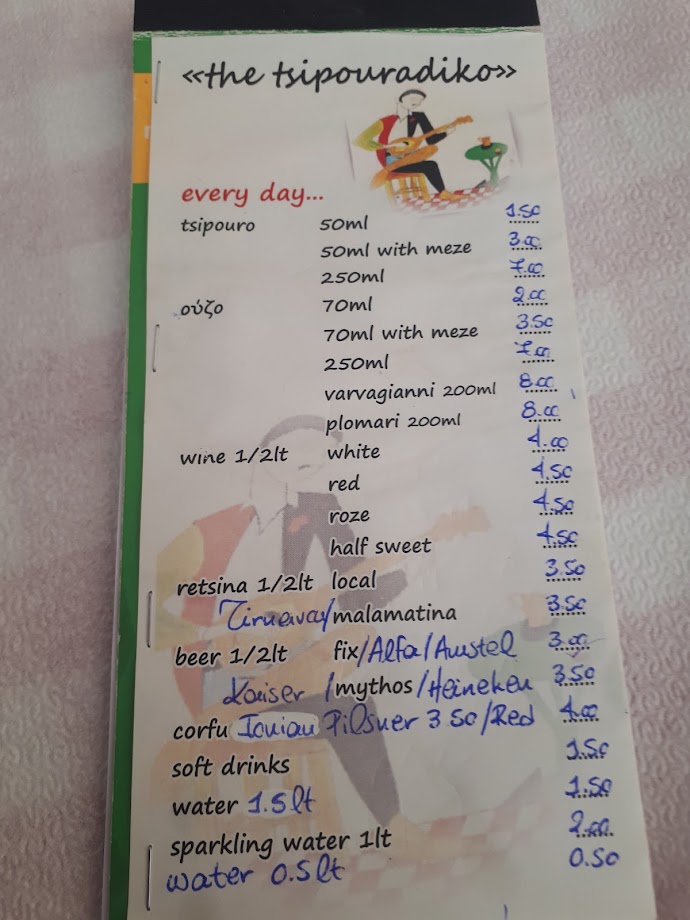 «the tsipouradiko»
every day...
tsipouro 50ml 1.50
50ml with meze 3.00
250ml 7.00
ούζο 70ml 2.00
70ml with meze 3.50
250ml 7.00
varvagianni 200ml 8.00
plomari 200ml 8.00
wine 1/2lt white 4.00
red 4.50
roze 4.50
half sweet 4.50
retsina 1/2lt local 3.50
/malamatina 3.50
beer 1/2lt fix/Alfa/Amstel 3.00
Kaiser /mythos/Heineken 3.50
corfu Ionian Pilsner 3 50/Red 4.00
soft drinks 1.50
water 1.5lt 1.50
sparkling water 1lt 2.00
water 0.5lt 0.50